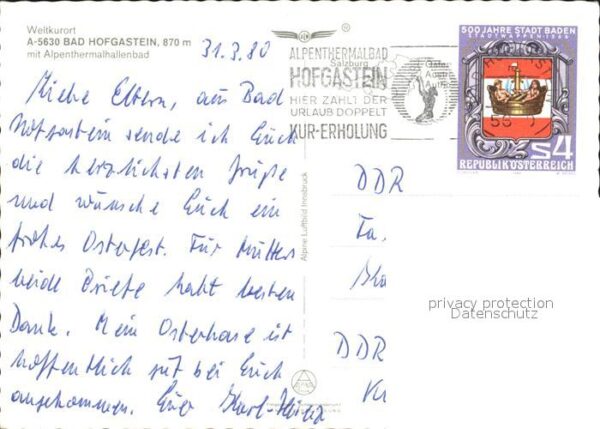 Weltkurort
A-5630 BAD HOFGASTEIN, 870 m
mit Alpenthermalhallenbad
31.3.80
Liebe Eltern, aus Bad
Hofgastein sende ich Euch
die herzlichsten Grüße
und wünsche Euch ein
frohes Osterfest. Für Mutters
beide Briefe habt besten
Dank. Mein Osterhase ist
hoffentlich gut bei Euch
angekommen. Euer Karl-Heinz
Alpine Luftbild Innsbruck
ALPENTHERMALBAD
Salzburg
HOFGASTEIN
HIER ZÄHLT DER
URLAUB DOPPELT
KUR-ERHOLUNG
500 JAHRE STADT BADEN
STADTWAPPEN 1566
S4
REPUBLIK ÖSTERREICH
DDR
Fa.
DDR
privacy protection
Datenschutz